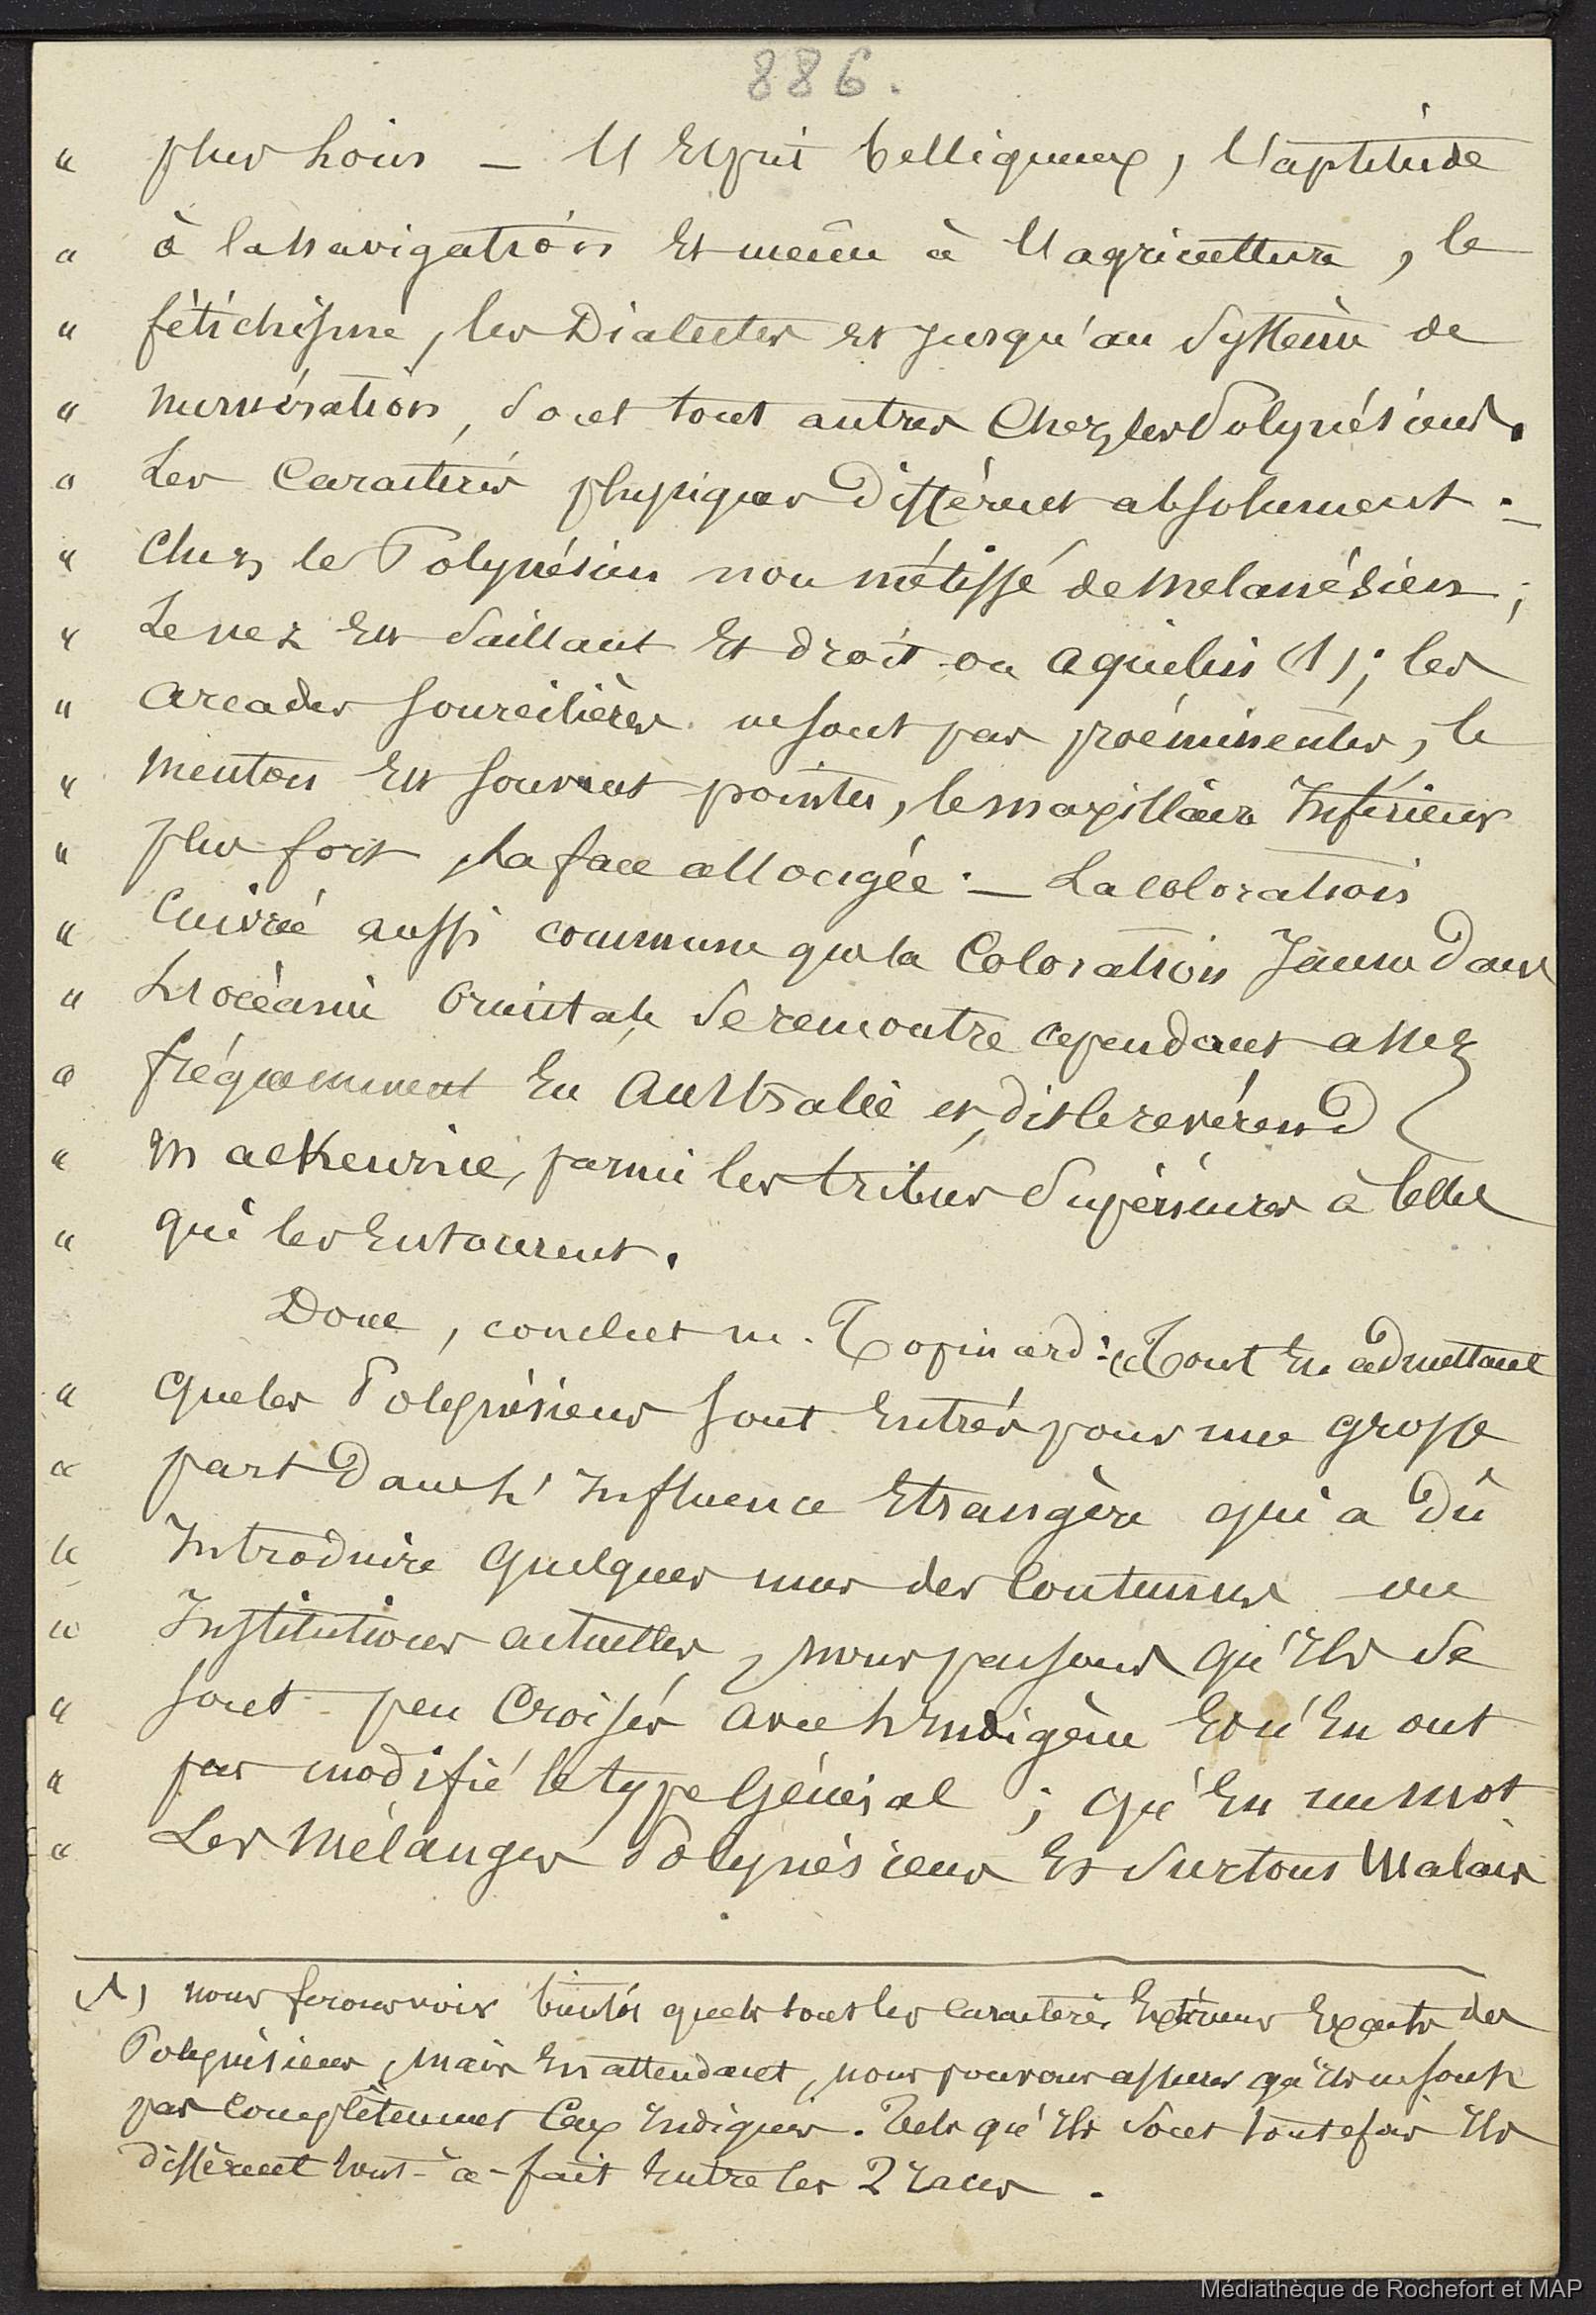 886.
" plus loin – l'Esprit belliqueux, l'aptitude
" à la navigation Et même à l'agriculture, le
" fétichisme, les Dialectes et jusqu'au Système de
" numération, sont tout autres Chez les Polynésiens.
" Les Caractères physiques Diffèrent absolument :
" Chez le Polynésien non métissé de melanésien ;
" Le nez Est Saillant Et droit ou aquilin (1) ; les
" arcades sourcilières ne sont pas proéminentes, le
" menton Est souvent pointu, le maxillaire Inférieur
" plus fort, la face allongée. – La coloration
" Cuivrée aussi commune que la Coloration Jaune Dans
" L'océanie Orientale, Se remontre cependant assez
" fréquemment En Australie et, dit le revérend
" Mackensie, parmi les tribus Supérieures à celles
" qui les Entourent.
Donc, conclut m. Topinard : "Tout En admettant
" que les Polynésiens sont Entrés pour une grosse
" part Dans l'Influence Etrangère qui a Dû
" Introduire quelques unes des Coutumes ou
" Institutions actuelles, nous pensons qu'Ils Se
" sont peu Croisés avec l'Indigène Et n'En ont
" pas modifié le type Général ; qu'En un mot
" Les Mélanges Polynésiens Et Surtout Malais
(1) nous ferons voir bientôt quels sont les Caractères Extérieurs Exacts des
Polynésiens, mais En attendant, nous pouvons assurer qu'Ils ne sont
pas Complètement Ceux Indiqués. Tels qu'Ils Sont toutefois Ils
diffèrent tout-à-fait Entre les 2 races.
Médiathèque de Rochefort et MAP